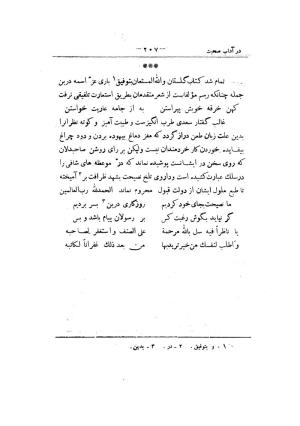 در آداب صحبت — ۲۰۷ —
***
تمام شد کتاب گلستان واللهُ المستعان بتوفیق۱ باری عزّ اسمه درین
جمله چنانکه رسم مؤلفانست از شعر متقدمان بطریق استعارت تلفیقی نرفت
کهن خرقه خویش پیراستن به از جامه عاریت خواستن
غالب گفتار سعدی طرب انگیزست و طیبت آمیز و کوته نظران را
بدین علت زبان طعن دراز گردد که مغز دماغ بیهوده بردن و دود چراغ
بیفایده خوردن کار خردمندان نیست ولیکن بر رای روشن صاحبدلان
که روی سخن در ایشانست پوشیده نماند که در۲ موعظه های شافی را
در سلک عبارت کشیده است و داروی تلخ نصیحت بشهد ظرافت بر۳ آمیخته
تا طبع ملول ایشان از دولت قبول محروم نماند الحمدلله رب العالمین
ما نصیحت بجای خود کردیم روزگاری درین۳ بسر بردیم
گر نیاید بگوش رغبت کس بر رسولان پیام باشد و بس
یا ناظراً فیه سل بالله مرحمة علی المصنف و استغفر لصاحبه
و اطلب لنفسك من خیر ترید بها من بعد ذلك غفراناً لکاتبه
۱. و بتوفیق. ۲- در. ۳- بدین.